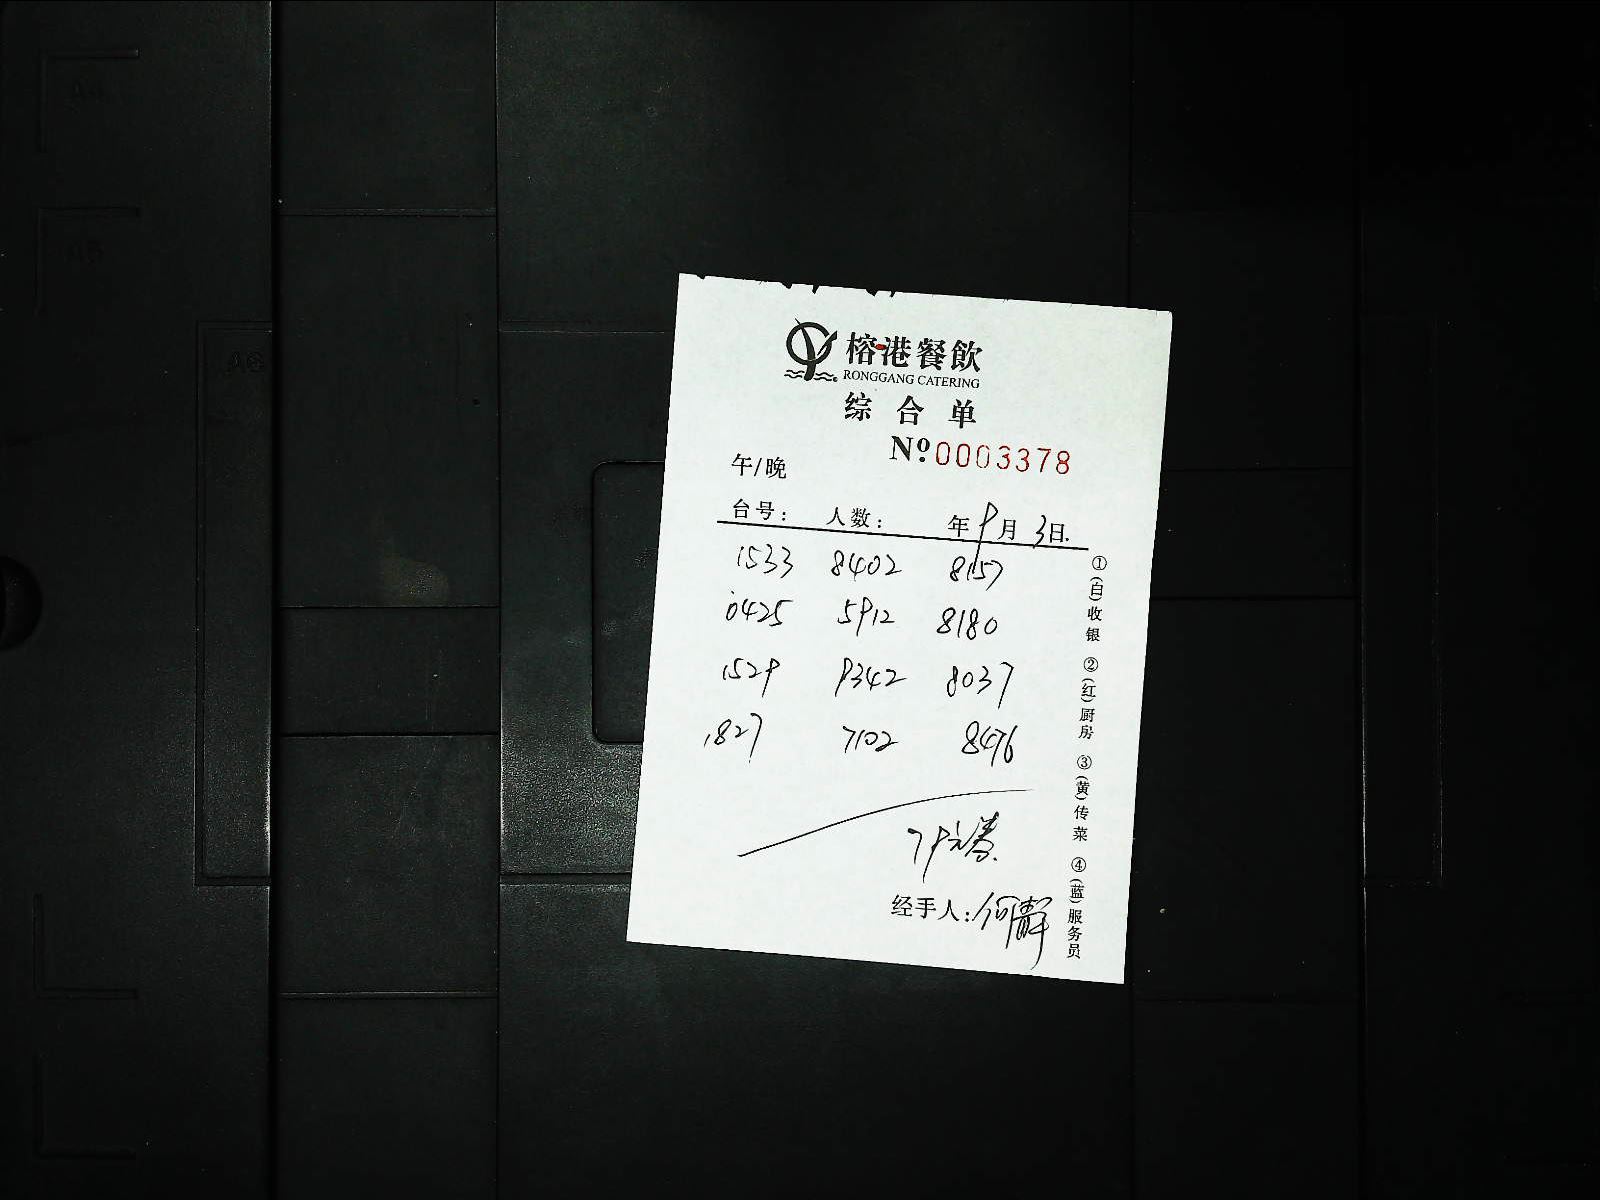 榕港餐飲
RONGGANG CATERING
综合单
Nº 0003378
午/晚
台号: 人数: 年9月3日.
1533 8402 8157
0425 5912 8180
1529 9342 8037
1827 7102 8476
经手人:何静
①(白)收银 ②(红)厨房 ③(黄)传菜 ④(蓝)服务员